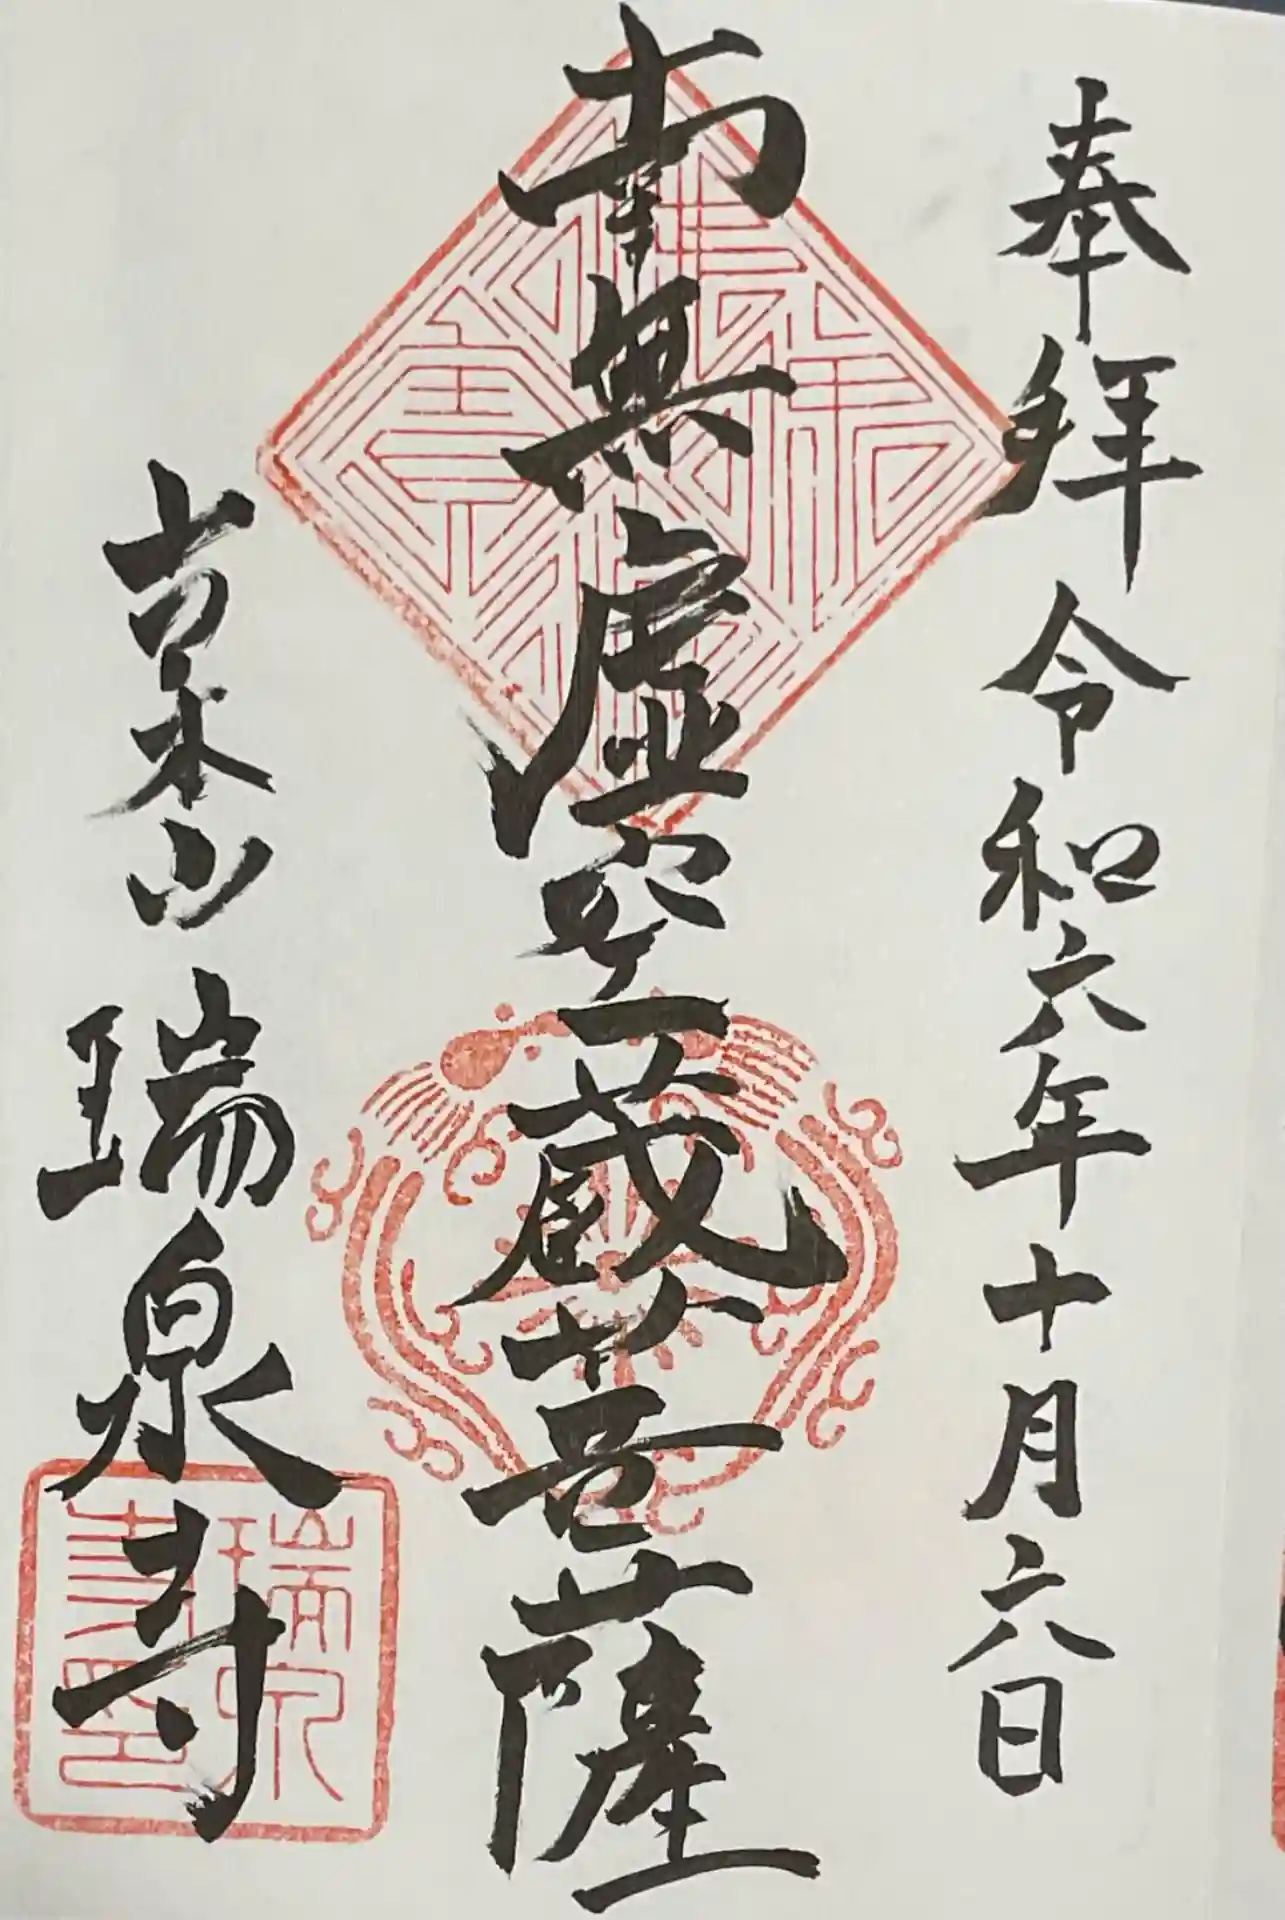 奉拝 令和六年十月六日
南無虚空蔵菩薩
古木山 瑞泉寺
瑞泉寺印